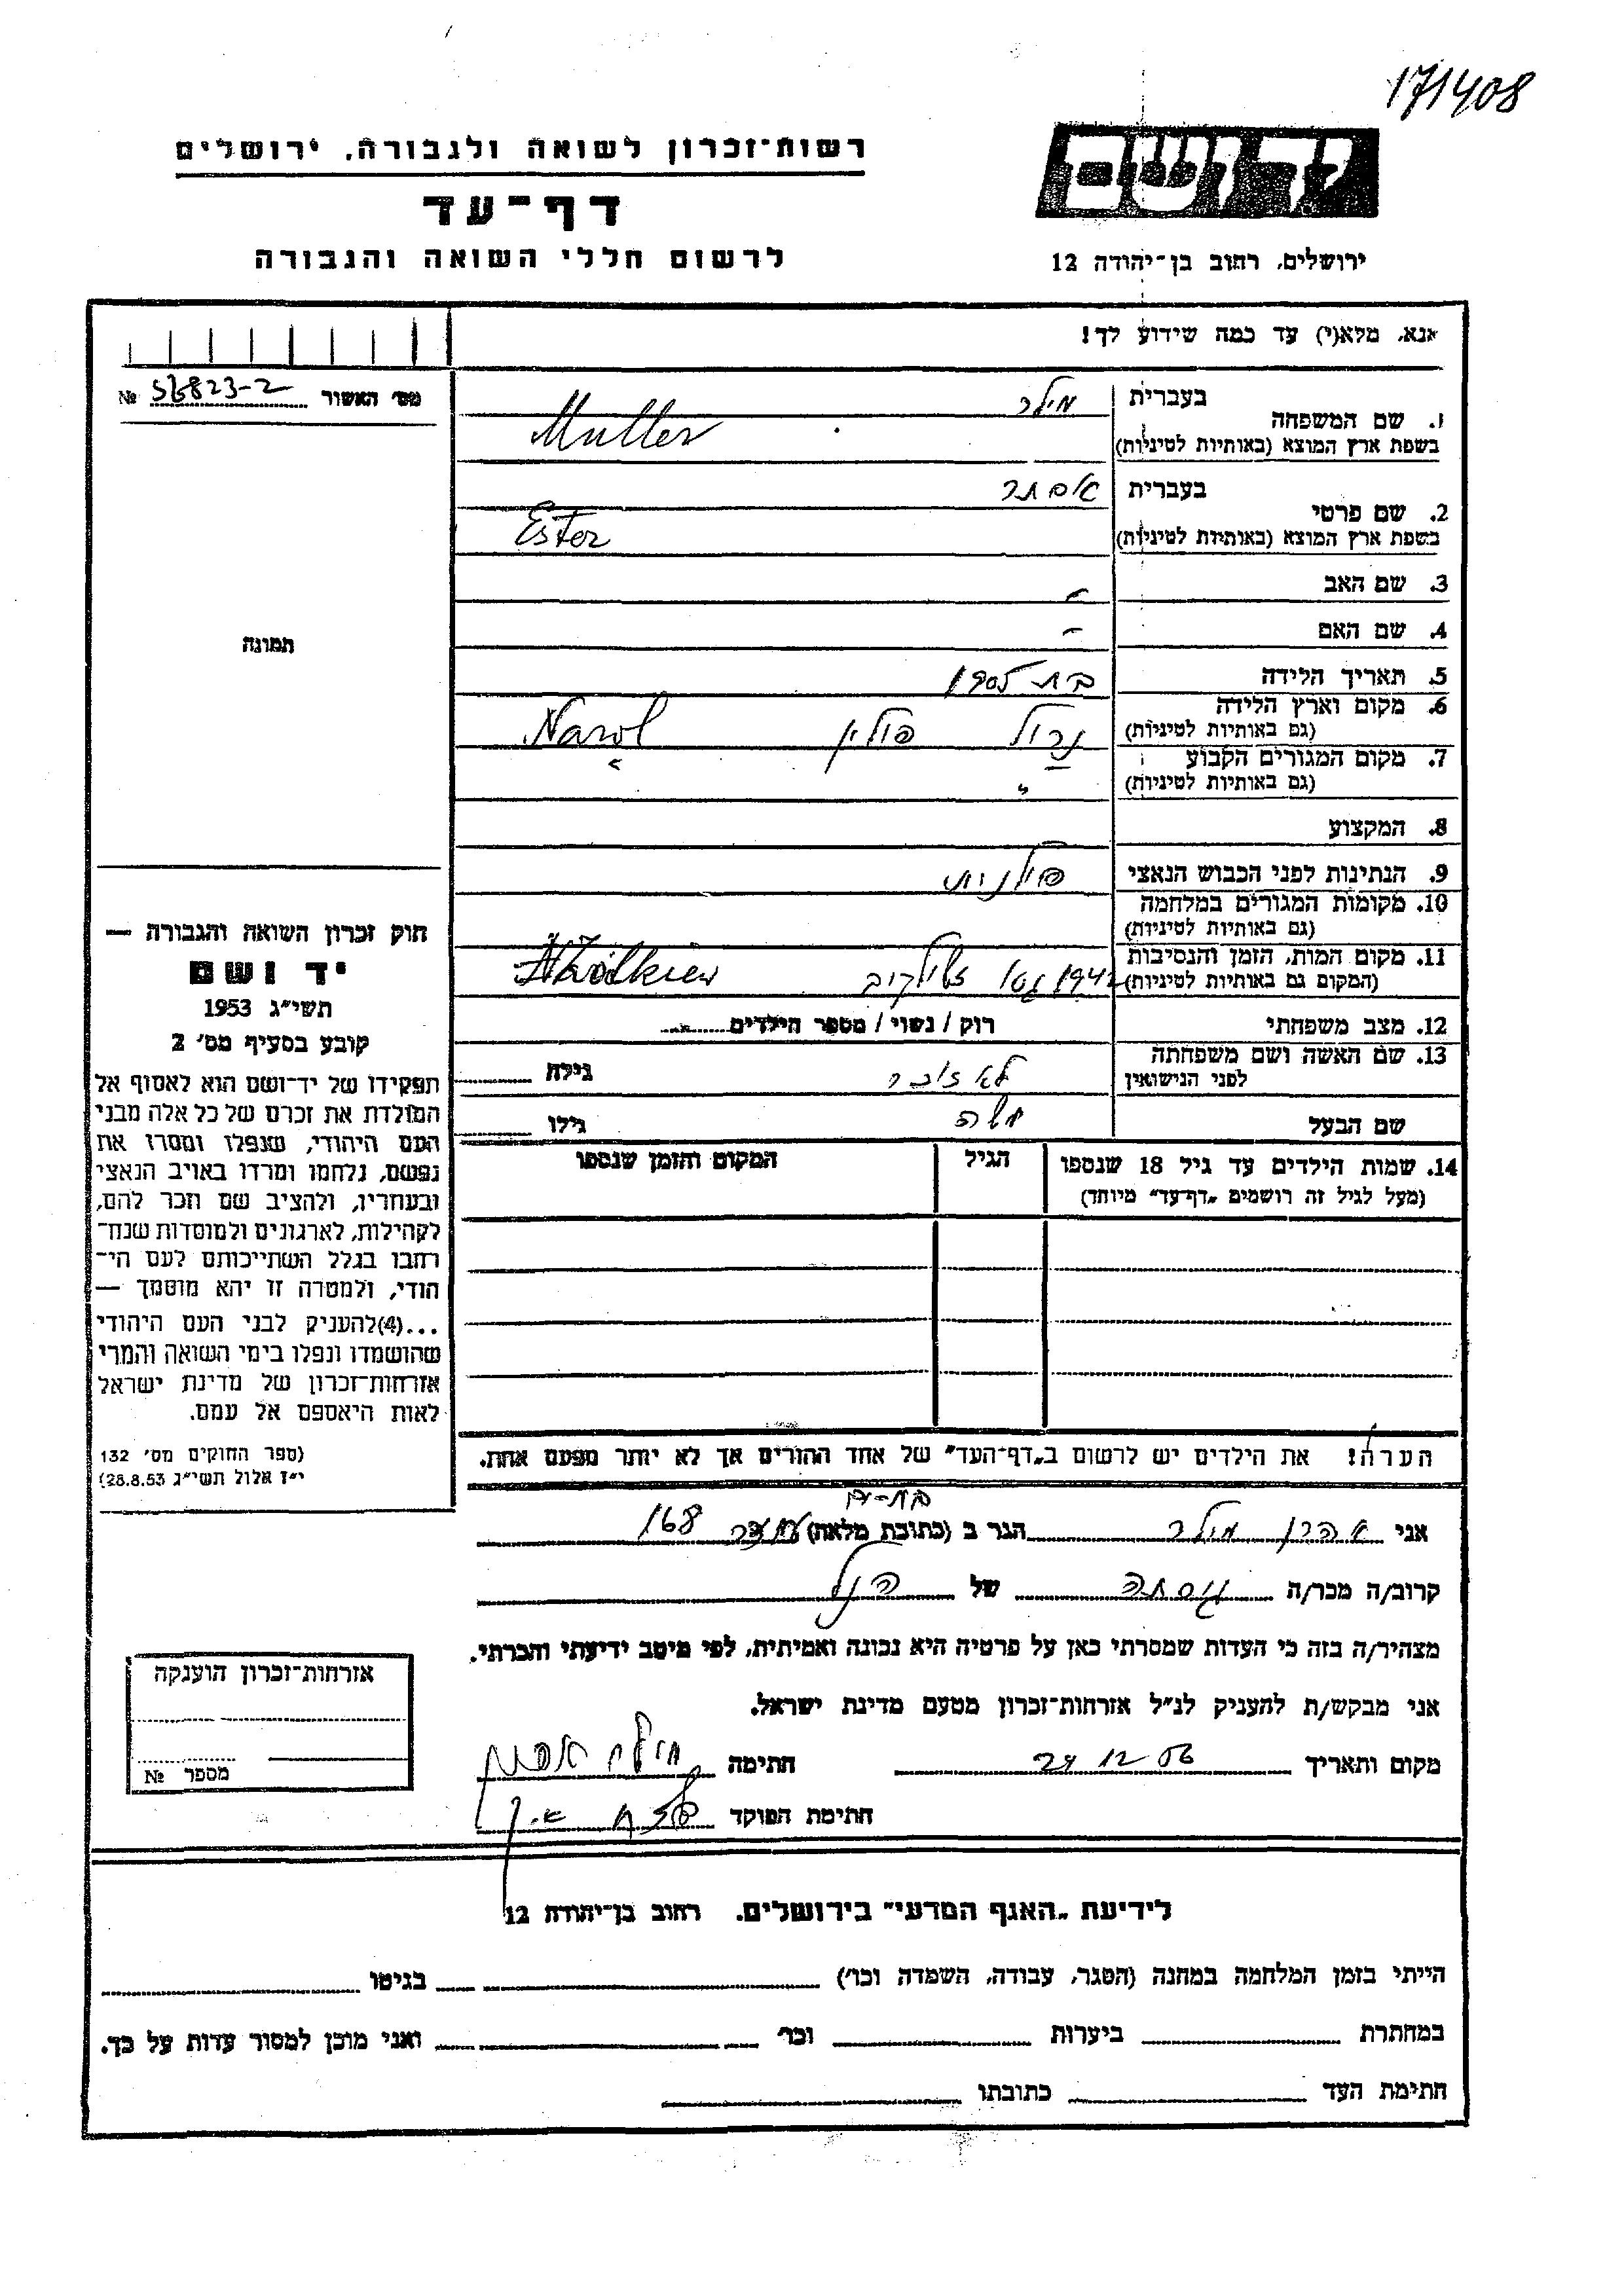 171408
רשות־זכרון לשואה ולגבורה, ירושלים
יד ושם
דף־עד
לרשום חללי השואה והגבורה
ירושלים, רחוב בן־יהודה 12
אנא, מלא(י) עד כמה שידוע לך!
מס׳ האשור 56823-2 №
1. שם המשפחה
בעברית מילר
בשפת ארץ המוצא (באותיות לטיניות) Muller
2. שם פרטי
בעברית אסתר
בשפת ארץ המוצא (באותיות לטיניות) Ester
3. שם האב -
4. שם האם -
תמונה
5. תאריך הלידה בת 1905
6. מקום וארץ הלידה
(גם באותיות לטיניות) נרול פולין Narol
7. מקום המגורים הקבוע
(גם באותיות לטיניות) "
8. המקצוע
9. הנתינות לפני הכבוש הנאצי פולנית
10. מקומות המגורים במלחמה
(גם באותיות לטיניות)
11. מקום המות, הזמן והנסיבות
(המקום גם באותיות לטיניות) 1942 גטו Żółkiew
12. מצב משפחתי רוק / נשוי / מספר הילדים
13. שם האשה ושם משפחתה
לפני הנישואין לא זוכר גילה
שם הבעל משה גילו
14. שמות הילדים עד גיל 18 שנספו הגיל המקום והזמן שנספו
(מעל לגיל זה רושמים „דף־עד” מיוחד)
חוק זכרון השואה והגבורה —
יד ושם
תשי״ג 1953
קובע בסעיף מס׳ 2
תפקידו של יד־ושם הוא לאסוף אל
המולדת את זכרם של כל אלה מבני
העם היהודי, שנפלו ומסרו את
נפשם, נלחמו ומרדו באויב הנאצי
ובעוזריו, ולהציב שם וזכר להם,
לקהילות, לארגונים ולמוסדות שנח־
רבו בגלל השתייכותם לעם הי־
הודי, ולמטרה זו יהא מוסמך —
...(4)להעניק לבני העם היהודי
שהושמדו ונפלו בימי השואה והמרי
אזרחות־זכרון של מדינת ישראל
לאות היאספם אל עמם.
(ספר החוקים מס׳ 132
י״ז אלול תשי״ג 28.8.53)
הערה! את הילדים יש לרשום ב„דף־העד” של אחד ההורים אך לא יותר מפעם אחת.
בת-ים
אני אהרן מילר הגר ב (כתובת מלאה) 168
קרוב/ה מכר/ה גיסתה של הנ״ל
מצהיר/ה בזה כי העדות שמסרתי כאן על פרטיה היא נכונה ואמיתית, לפי מיטב ידיעתי והכרתי.
אני מבקש/ת להעניק לנ״ל אזרחות־זכרון מטעם מדינת ישראל.
מקום ותאריך 24 12 56 חתימה מילר אהרן
חתימת הפוקד
אזרחות־זכרון הוענקה
מספר №
לידיעת „האגף המדעי” בירושלים. רחוב בן־יהודה 12
הייתי בזמן המלחמה במחנה (הסגר, עבודה, השמדה וכו׳) בגיטו
במחתרת ביערות וכו׳ ואני מוכן למסור עדות על כך.
חתימת העד כתובתו